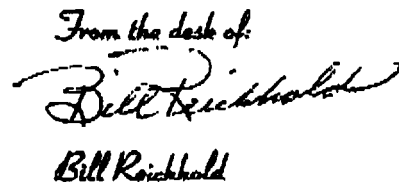 From the desk of:
Bill Reichhold
Bill Reichhold